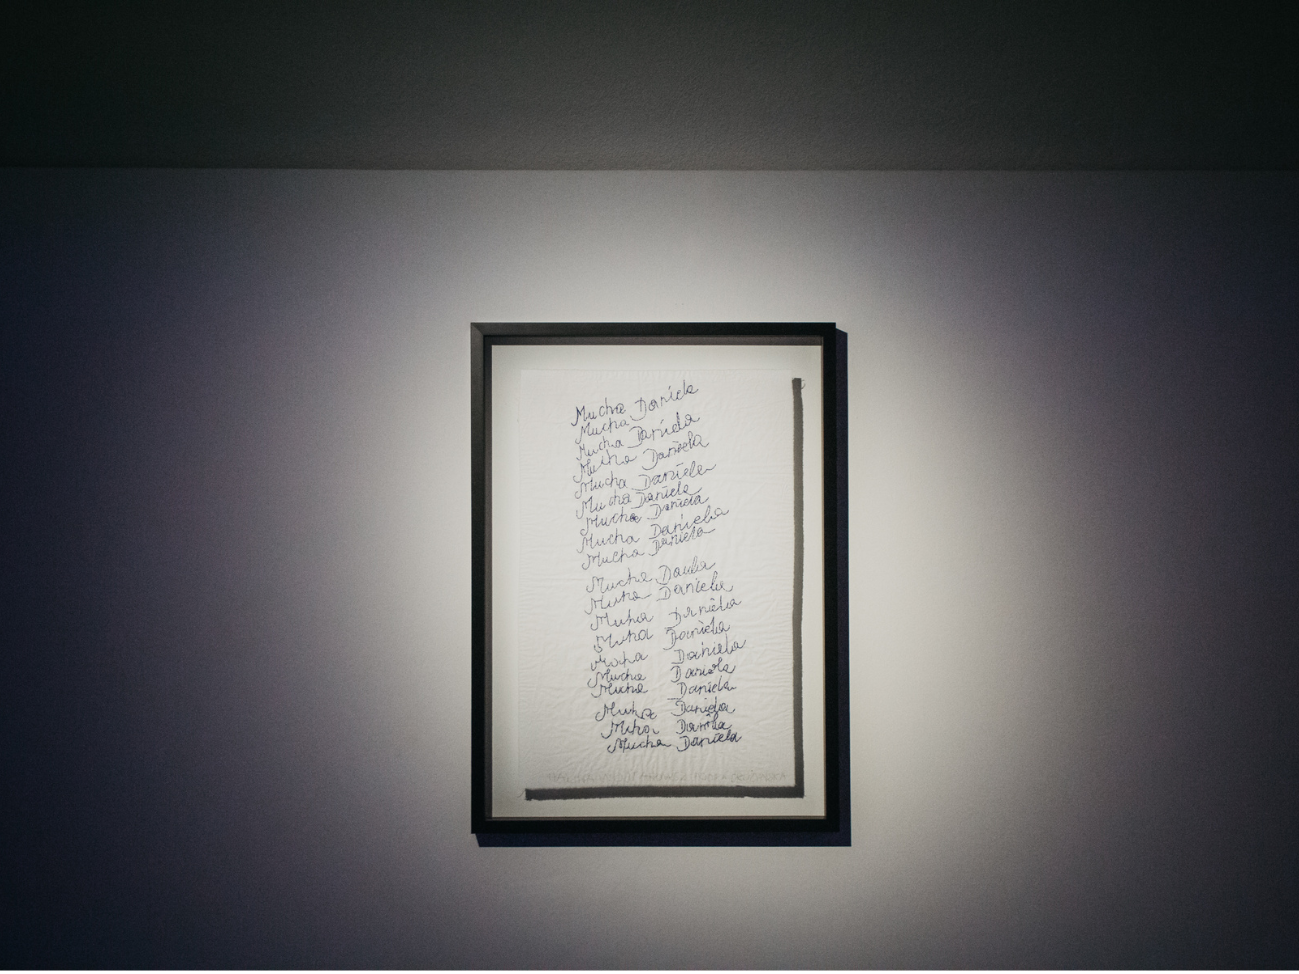 Mucha Daniela
Mucha
Mucha Daniela
Mucha Daniela
Mucha Daniela
Mucha Daniela
Mucha Daniela
Mucha Daniela
Mucha Daniela
Mucha Dauba
Muha Daniela
Muha Daniela
Muha Daniela
Mucha Daniela
Mucha Daniela
Mucha Daniela
Mucha Daniela
Muha Daniela
Mucha Daniela